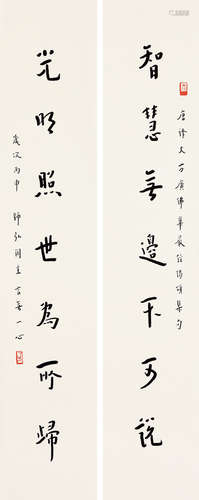 智慧無邊不可說
唐譯大方廣佛華嚴經偈頌集句
光明照世為所歸
歲次丙申
一心